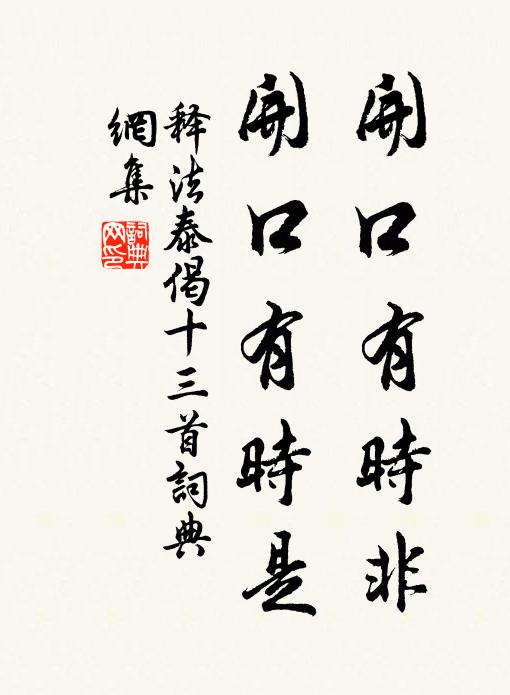 開口有時非
開口有時是
释法泰偈十三首詞典
網集
詞典
网印